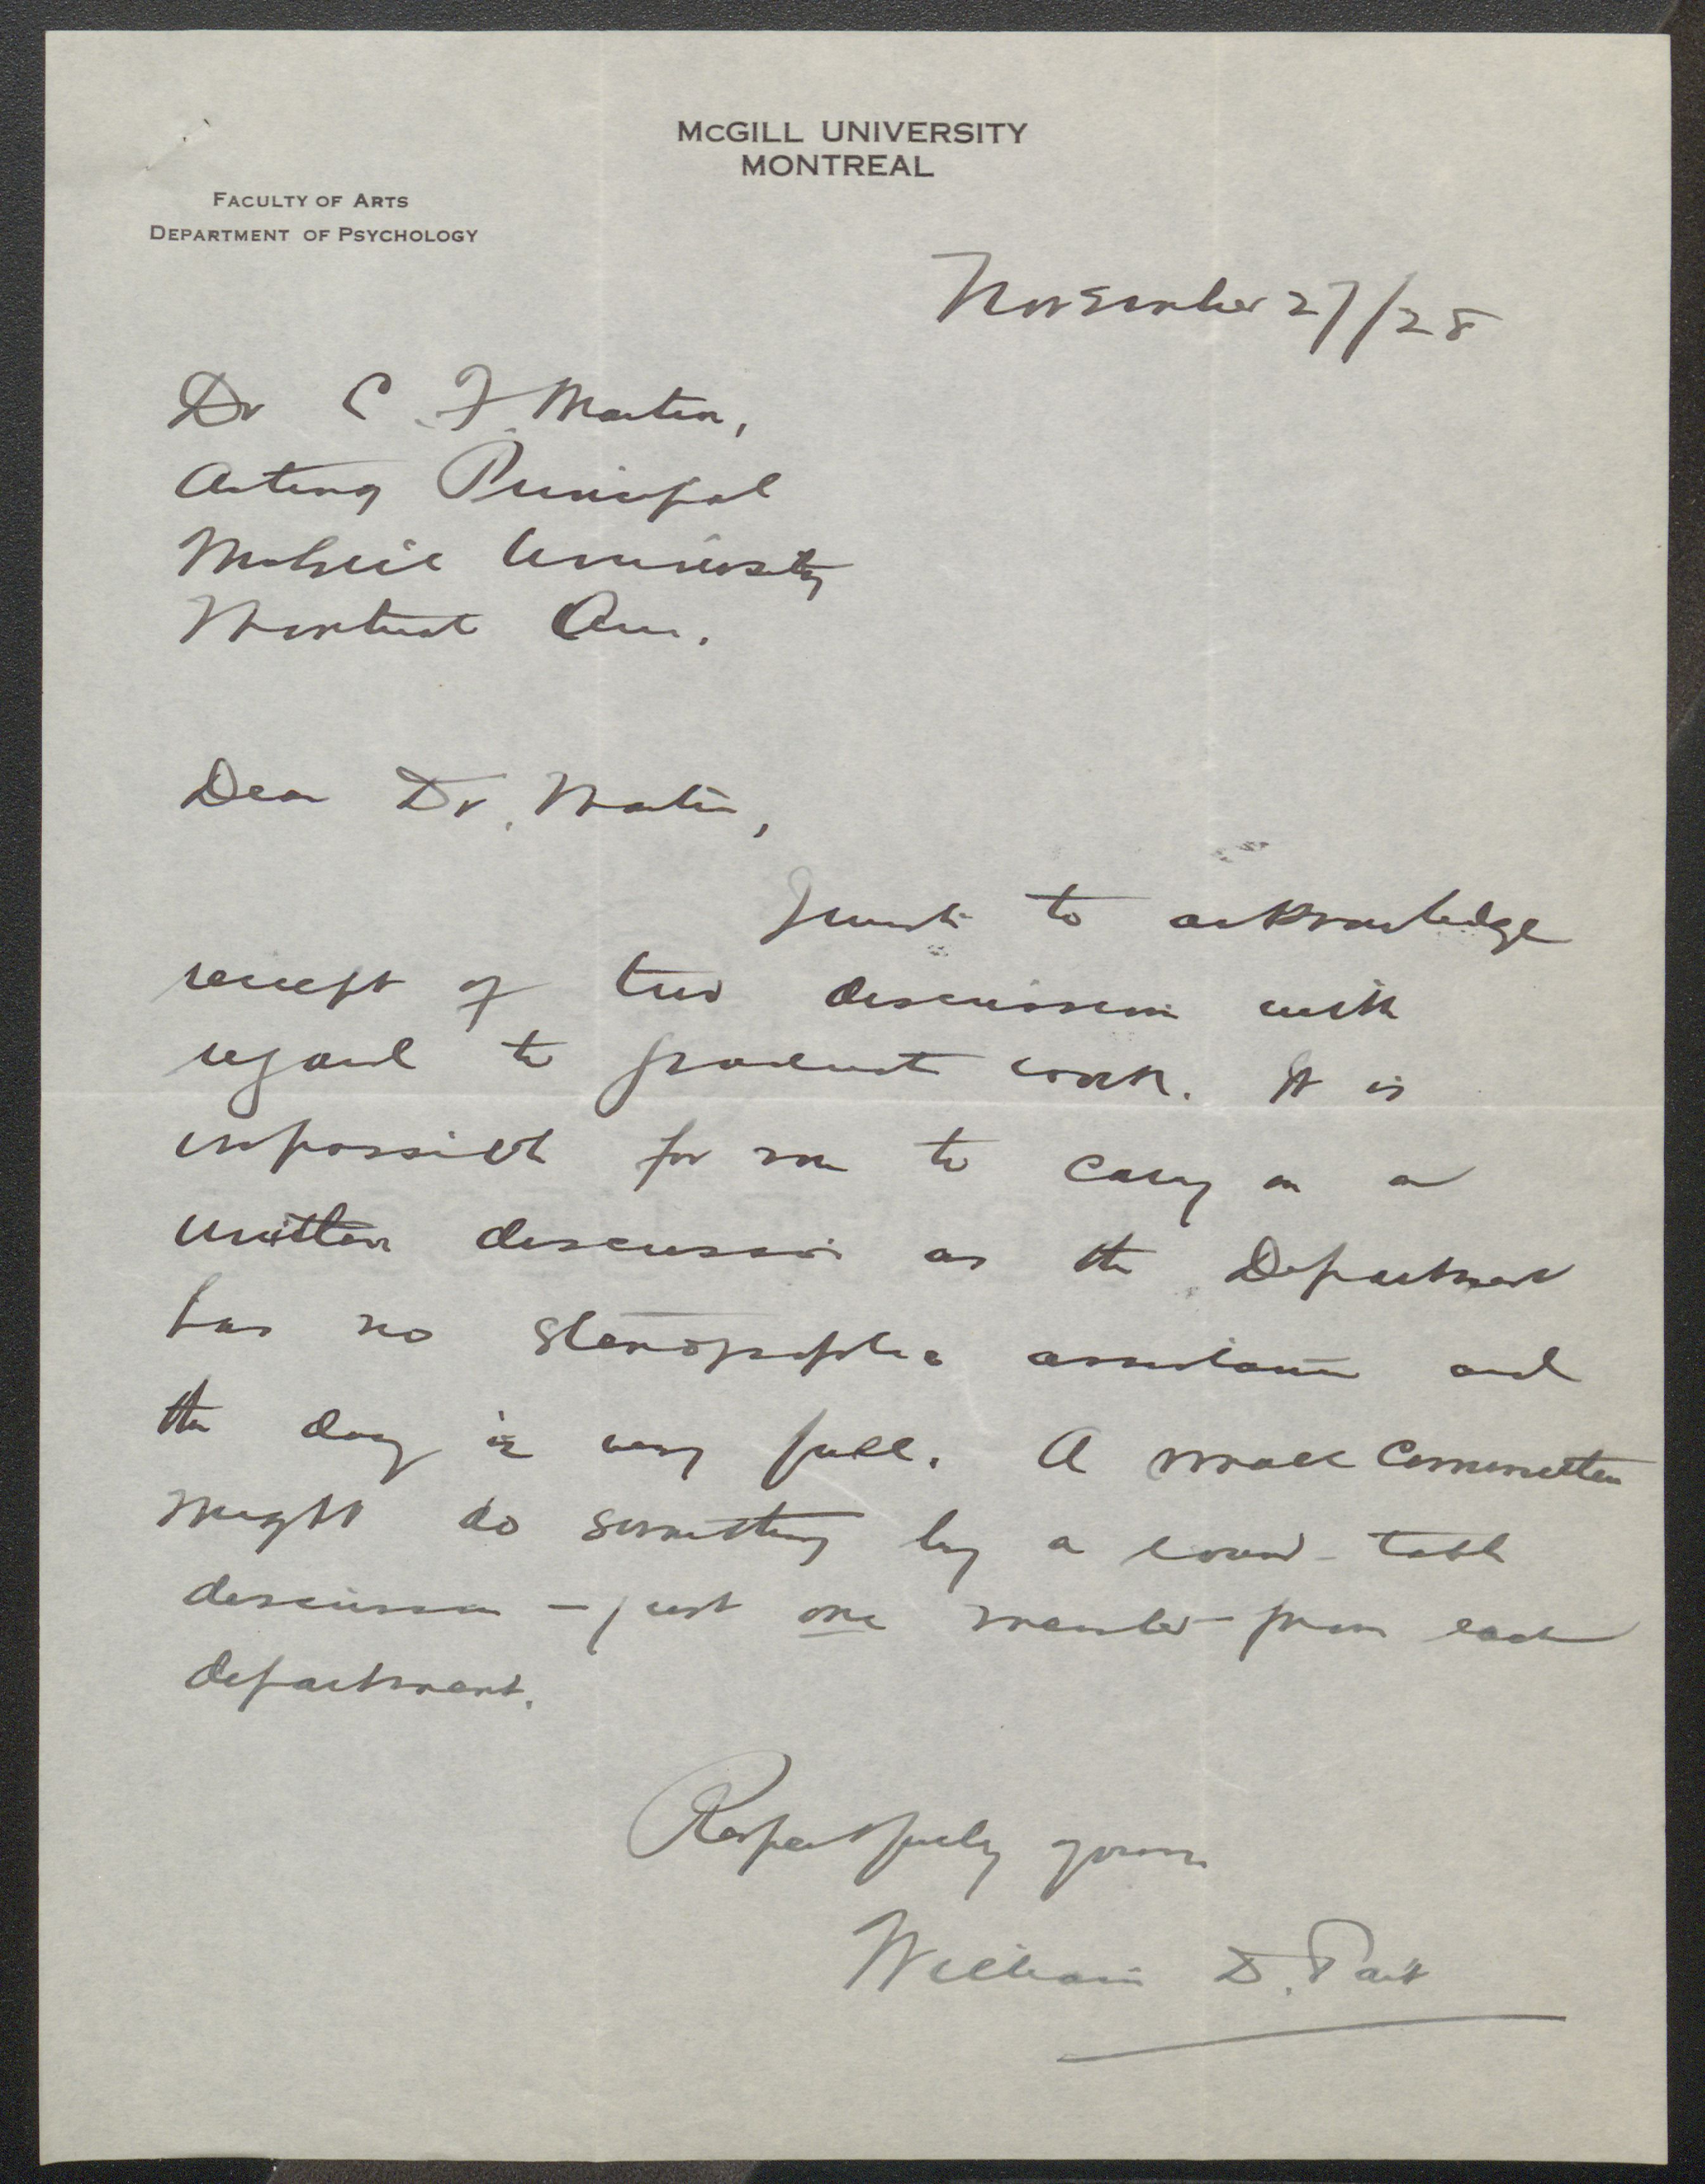 McGILL UNIVERSITY
MONTREAL
FACULTY OF ARTS
DEPARTMENT OF PSYCHOLOGY
November 27/28
Dr C. F. Martin,
Acting Principal
McGill University
Montreal Que.
Dear Dr. Martin,
I wish to acknowledge
receipt of two discussions with
regard to graduate work. It is
impossible for me to carry on a
written discussion as the Department
has no stenographic assistance and
the day is very full. A small Committee
might do something by a round-table
discussion - just one member from each
department.
Respectfully yours
William D. Tait